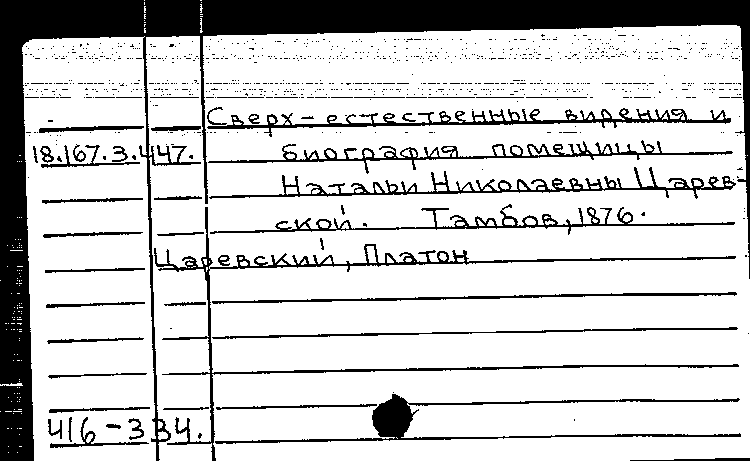 Сверх-естественные видения и
18.167.3.447. биография помещицы
Натальи Николаевны Царев-
ской. Тамбов, 1876.
Царевский, Платон
416-334.